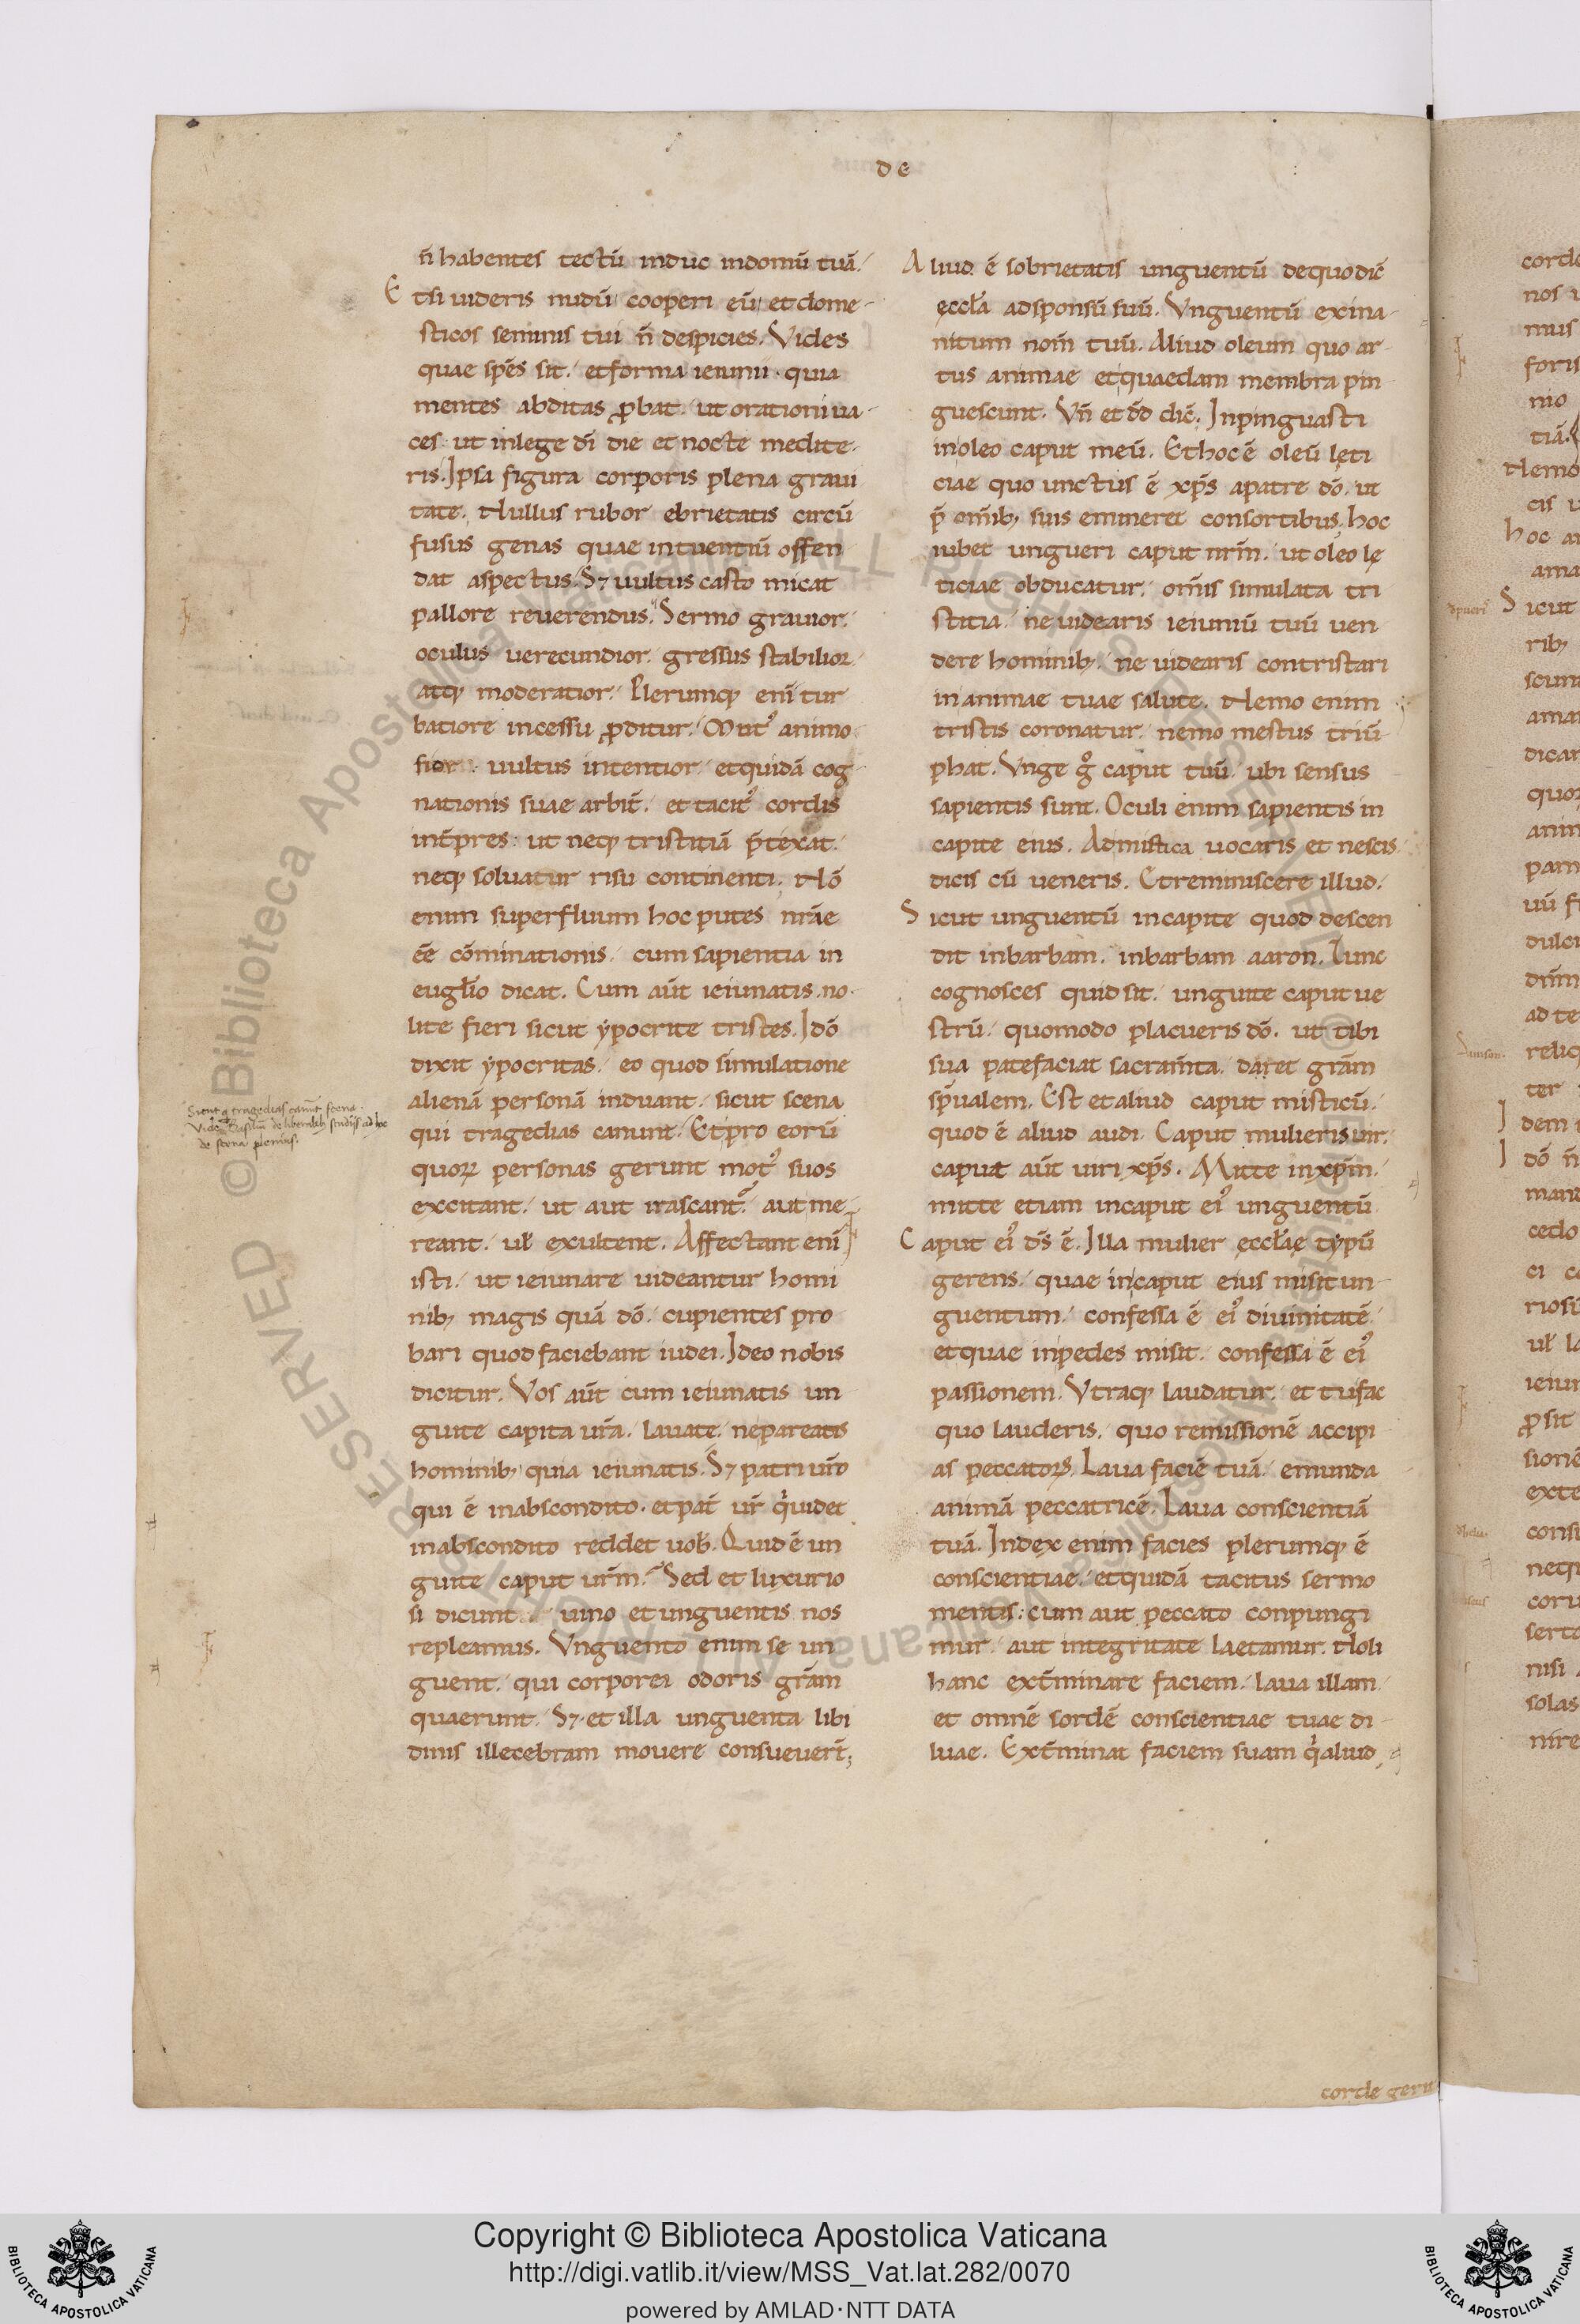 de
n̄ habentes tectū induc indomū tuā.
E tsi uideris nudū cooperi eū et dome-
sticos seminis tui n̄ despicies. Vides
quae spēs sit. et forma ieiunii. quia
mentes abditas ꝓbat. ut orationi ua-
ces. ut inlege dī die et nocte medite-
ris. Ipsa figura corporis plena graui
tate. Nullus rubor ebrietatis circū
fusus genas quae intuentiū offen
dat aspectus. S; uultus casto micat
pallore reuerendus. Sermo grauior.
oculus uerecundior. gressus stabilior.
atq; moderatior. Plerumq; enī tur
batiore incessu ꝓditur. Mutꝰ animo
fior uultus intentior. et quidā cog
nationis suae arbit̄. et tacitꝰ cordis
int̄pres: ut neq; tristitiā p̄texat.
neq; soluatur risu continenti. Nō
enim superfluum hoc putes nr̄ae
ēē cōminationis. cum sapientia in
eugl̄io dicat. Cum aūt ieiunatis no-
lite fieri sicut ypocrite tristes. Idō
dixit ypocritas. eo quod simulatione
alienā personā induant. sicut scena
qui tragedias canunt. Et pro eorū
quoꝝ personas gerunt motꝰ suos
excitant. ut aut irascant̄. aut me-
reant. ul̄ exultent. Affectant enī
isti. ut ieiunare uideantur homi
nib; magis quā dō. cupientes pro
bari quod faciebant iudei. Ideo nobis
dicitur. Vos aūt cum ieiunatis un
guite capita ur̄a. lauate. ne pareatis
hominib; quia ieiunatis. S; patri ur̄o
qui ē inabscondito. et pat̄ ur̄ q̇ uidet
inabscondito reddet uob̄. Quid ē un
guite caput ur̄m. Sed et luxurio
si dicunt uino et unguentis nos
repleamus. Vnguento enim se un
guent. qui corporei odoris gr̄am
quaerunt. S; et illa unguenta libi
dinis illecebram mouere consueuer̄t;
A liud ē sobrietatis unguentū dequo dic̄
ęccl̄a ad sponsū suū. Vnguentū exina-
nitum nom̄ tuū. Aliud oleum quo ar-
tus animae et quaedam membra pin
guescunt. Vn̄ et dd̄ dic̄. Inpinguasti
inoleo caput meū. Et hoc ē oleū lęti
ciae quo unctus ē xp̄s apatre dō. ut
p̄ om̄ib; suis emineret consortibus. hoc
iubet ungueri caput nr̄m. ut oleo lę
ticiae obducatur. om̄is simulata tri
stitia. ne uidearis ieiuniū tuū uen
dere hominib;. ne uidearis contristari
in animae tuae salute. Nemo enim
tristis coronatur. nemo mestus triū-
phat. Vnge gͦ caput tuū. ubi sensus
sapientis sunt. Oculi enim sapientis in
capite eius. Ad mistica uocaris et nescis.
dicis cū ueneris. Et reminiscere illud.
S icut unguentū incapite quod descen
dit inbarbam. inbarbam aaron. Tunc
cognosces quid sit. unguite caput ue
strū. quomodo placueris dō. ut tibi
sua patefaciat sacram̄ta. daret gr̄am
sp̄ualem. Est et aliud caput misticū.
quod ē aliud audi. Caput mulieris uir.
caput aūt uiri xp̄s. Mitte inxp̄m.
mitte etiam incaput eiꝰ unguentū
C aput eiꝰ d̄s ē. Illa mulier ęccl̄ae typū
gerens. quae incaput eius misit un-
guentum. confessa ē eiꝰ diuinitatē.
et quae inpedes misit. confessa ē eiꝰ
passionem. Vtraq; laudatur. et tu fac
quo lauderis. quo remissionē accipi
as peccatoꝝ. Laua faciē tuā. emunda
animā peccatricē. Laua conscientiā
tuā. Index enim facies plerumq; ē
conscientiae. et quidā tacitus sermo
mentis: cum aut peccato conpungi
mur. aut integritate laetamur. Noli
hanc ext̄minare faciem. laua illam.
et omnē sordē conscientiae tuae di-
luae. Ext̄minat faciem suam q̇ aliud
corde geru
Copyright © Biblioteca Apostolica Vaticana
http://digi.vatlib.it/view/MSS_Vat.lat.282/0070
powered by AMLAD·NTT DATA
BIBLIOTECA APOSTOLICA VATICANA
BIBLIOTECA APOSTOLICA VATICANA